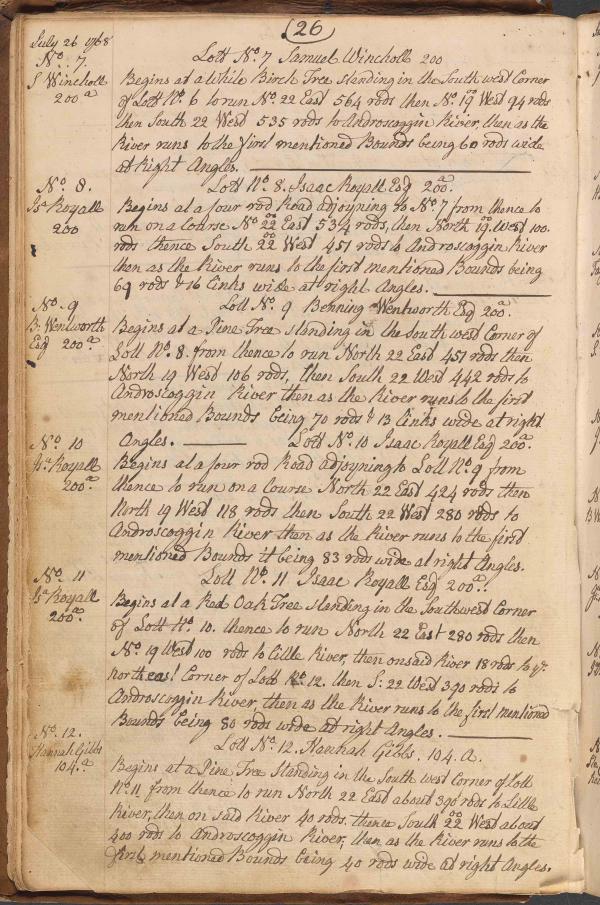 (26)
July 26 1768
Lott No. 7 Samuel Wincholl 200
No. 7.
S Wincholl
200 a
Begins at a White Birch Tree standing in the South west Corner
of Lott No. 6 to run No. 22 East 564 rods then No. 19 West 94 rods
then South 22 West 535 rods to Androscoggin River, then as the
River runs to the first mentioned Bounds being 60 rods wide
at Right Angles.
No. 8.
Lott No. 8. Isaac Royall Esq 200a.
Isa Royall
200
Begins at a four rod Road adjoyning to No. 7 from thence to
run on a Course No. 22 East 534 rods, then North 19. West 100
rods thence South 22 West 451 rods to Androscoggin River
then as the River runs to the first mentioned Bounds being
69 rods & 16 links wide at right Angles.
No. 9
Lott No. 9 Benning Wentworth Esq 200a.
B. Wentworth
Esq 200a.
Begins at a Pine Tree standing in the South west Corner of
Lott No. 8. from thence to run North 22 East 451 rods then
North 19 West 106 rods, then South 22 West 442 rods to
Androscoggin River then as the River runs to the first
mentioned Bounds being 70 rods & 13 links wide at right
Angles. Lott No. 10 Isaac Royall Esq 200a.
No. 10
Isa. Royall
200a.
Begins at a four rod Road adjoyning to Lott No. 9 from
thence to run on a Course North 22 East 424 rods then
North 19 West 118 rods then South 22 West 280 rods to
Androscoggin River then as the River runs to the first
mentioned Bounds it being 83 rods wide at right Angles.
No. 11
Lott No. 11 Isaac Royall Esq 200a.
Isa Royall
200a.
Begins at a Red Oak Tree standing in the Southwest Corner
of Lott No. 10. thence to run North 22 East 280 rods then
No. 19 West 100 rods to little River, then on said River 18 rods to ye
northeast Corner of Lott No. 12. then S: 22 West 390 rods to
Androscoggin River, then as the River runs to the first mentioned
Bounds being 80 rods wide at right Angles.
No. 12.
Lott No. 12. Hannah Gibbs. 104. A.
Hannah Gibbs
104. a
Begins at a Pine Tree Standing in the South west Corner of Lott
No 11 from thence to run North 22 East about 390 rods to Little
River, then on said River 40 rods. thence South 22 West about
400 rods to Androscoggin River, then as the River runs to the
first mentioned Bounds being 40 rods wide at right Angles.